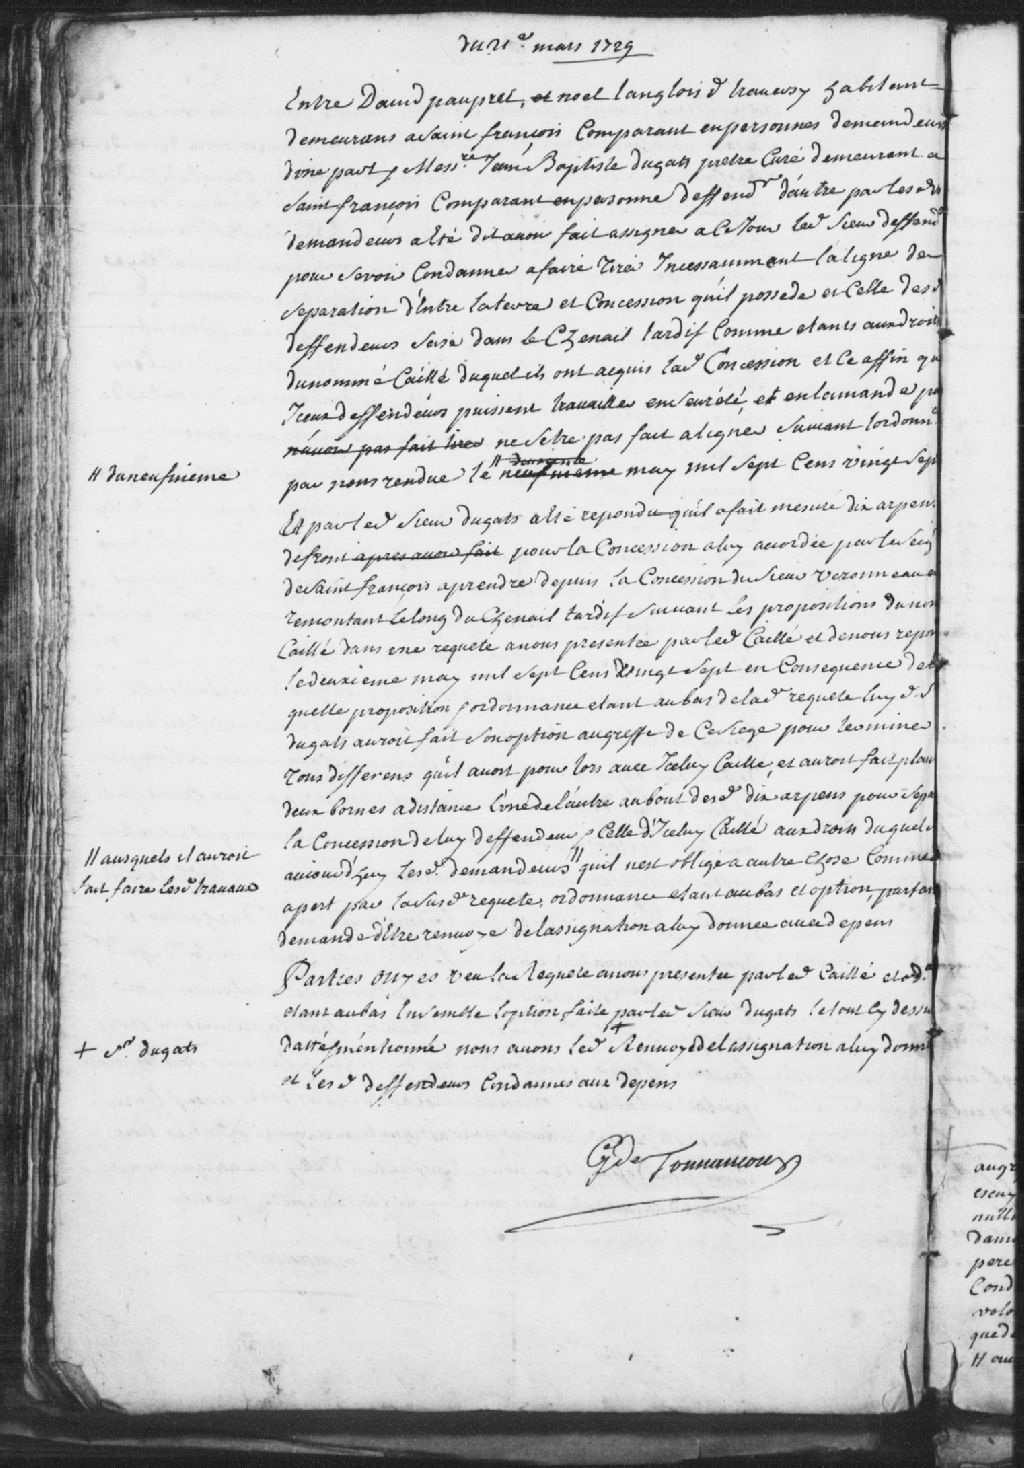 du 21e mars 1729
Entre David paupret, et noel langlois d traversy habitant
demeurans a saint françois Comparant en personnes demandeurs
d'une part, Messre Jean Baptiste dugats prêtre Curé demeurant a
saint françois Comparant en personne deffendr d'autre par lesd
demandeurs a Eté dit avoir fait assigner a Ce Jour led sieur deffendr
pour se voir Condanner a faire tirer Incessamment la ligne de
separation d'Entre la terre et Concession qu'il possede et Celle desd
deffendeurs sise dans le Chenail tardif Comme etants aux droits
du nommé Caillé duquel ils ont acquis lad Concession et Ce affin qu
Iceux deffendeurs puissent travailler en seureté, et en lamande po
n'avoir pas fait tirer ne s'etre pas fait aligner suivant lordonn
par nous rendue le // neufvieme may mil sept Cens vingt sep
// du neufvieme
Et par led sieur dugats a Eté repondu qu'il a fait mesuré dix arpens
de front apres avoir fait pour la Concession a luy accordée par le seig
de saint françois a prendre depuis la Concession du sieur veronneau e
remontant le long du Chenail tardif suivant les propositions du nom
Caillé dans une requete a nous presentée par led Caillé et de nous repon
le deuxieme may mil sept Cens Vingt sept en Consequence de la
quelle proposition, ordonnance etant au bas de lad requete luy d S
dugats auroit fait son option au greffe de Ce siege pour terminer
tous differens qu'il avoit pour lors avec Iceluy Caillé, et auroit fait plan
deux bornes a distance l'une de l'autre au bout desd dix arpens pour sepa
la Concession de luy deffendeur, Celle d'Iceluy Caillé aux droits duquel
aujourd'huy lesd demandeurs // qu'il nest obligé a autre Chose Comme
// ausquels il auroit
fait faire lesd travaux
apert par la susd requete, ordonnance etant au bas et option, partant
demande d'Etre renvoyé de lassignation a luy donnée avec depens
Parties ouyes veu la Requete a nous presentée par led Caillé et ord
etant au bas Ensemble l'option faite par led sieur dugats le tout Cy dessu
datté, mentionné nous avons led + Renvoyé de lassignation a luy donné
+ Sr dugats
et Lesd deffendeurs Condannes aux depens
G de Tonnancour